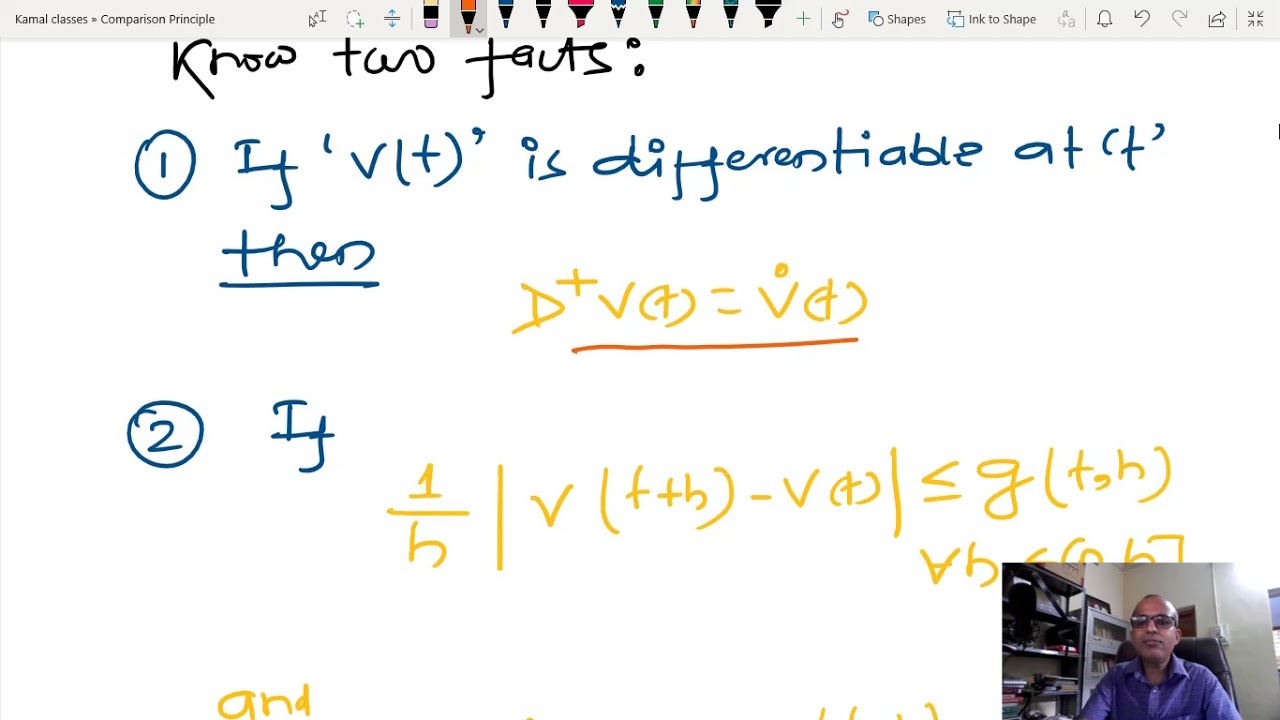 Kamal classes » Comparison Principle
Shapes
Ink to Shape
Know two facts:
① If 'V(t)' is differentiable at 't'
then
D⁺V(t) = V̇(t)
② If
1/h |V(t+h) - V(t)| ≤ g(t,h)
∀h
and